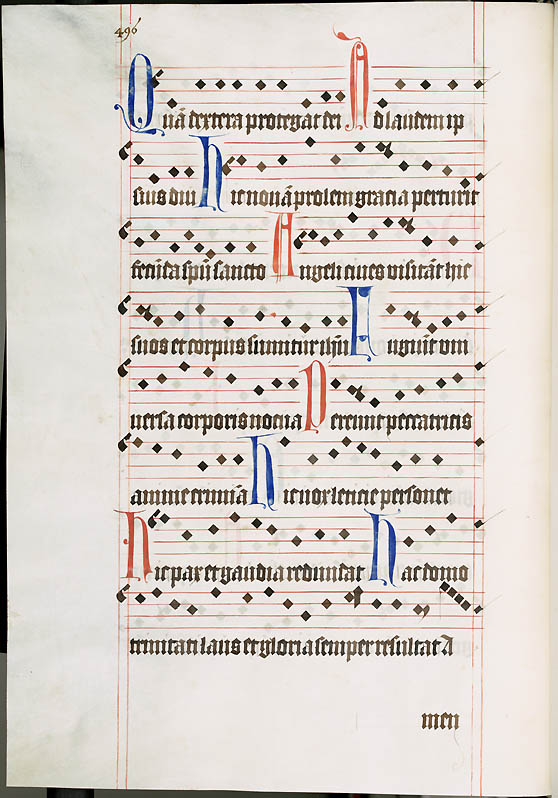 496
Quā dextera protegat dei Ad laudem ip
sius diui Hic nouā prolem gracia parturit
fecūda spū sancto Angeli ciues visitāt hic
suos et corpus sumitur ihū Fugiūt vni
uersa corporis nociua Pereunt peccatricis
anime crimīa Hic vox leticie personet
Hic pax et gaudia redundāt Hac domo
trinitati laus et gloria semper resultat A
men